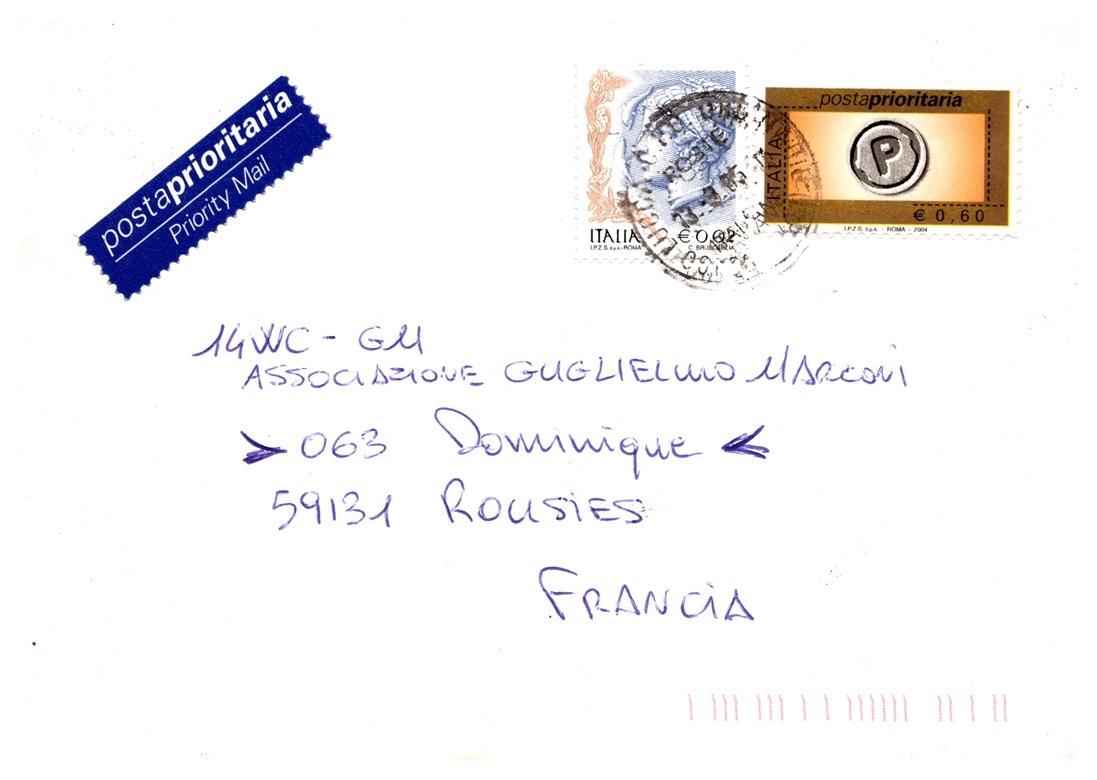 postaprioritaria
Priority Mail
ITALIA € 0,02
I.P.Z.S. S.p.A. - ROMA C. BRUSCAGLIA
POSTE
postaprioritaria
ITALIA
P
€ 0,60
I.P.Z.S. S.p.A. - ROMA - 2004
14WC - GM
ASSOCIAZIONE GUGLIELMO MARCONI
> 063 Dominique <
59131 ROUSIES
FRANCIA